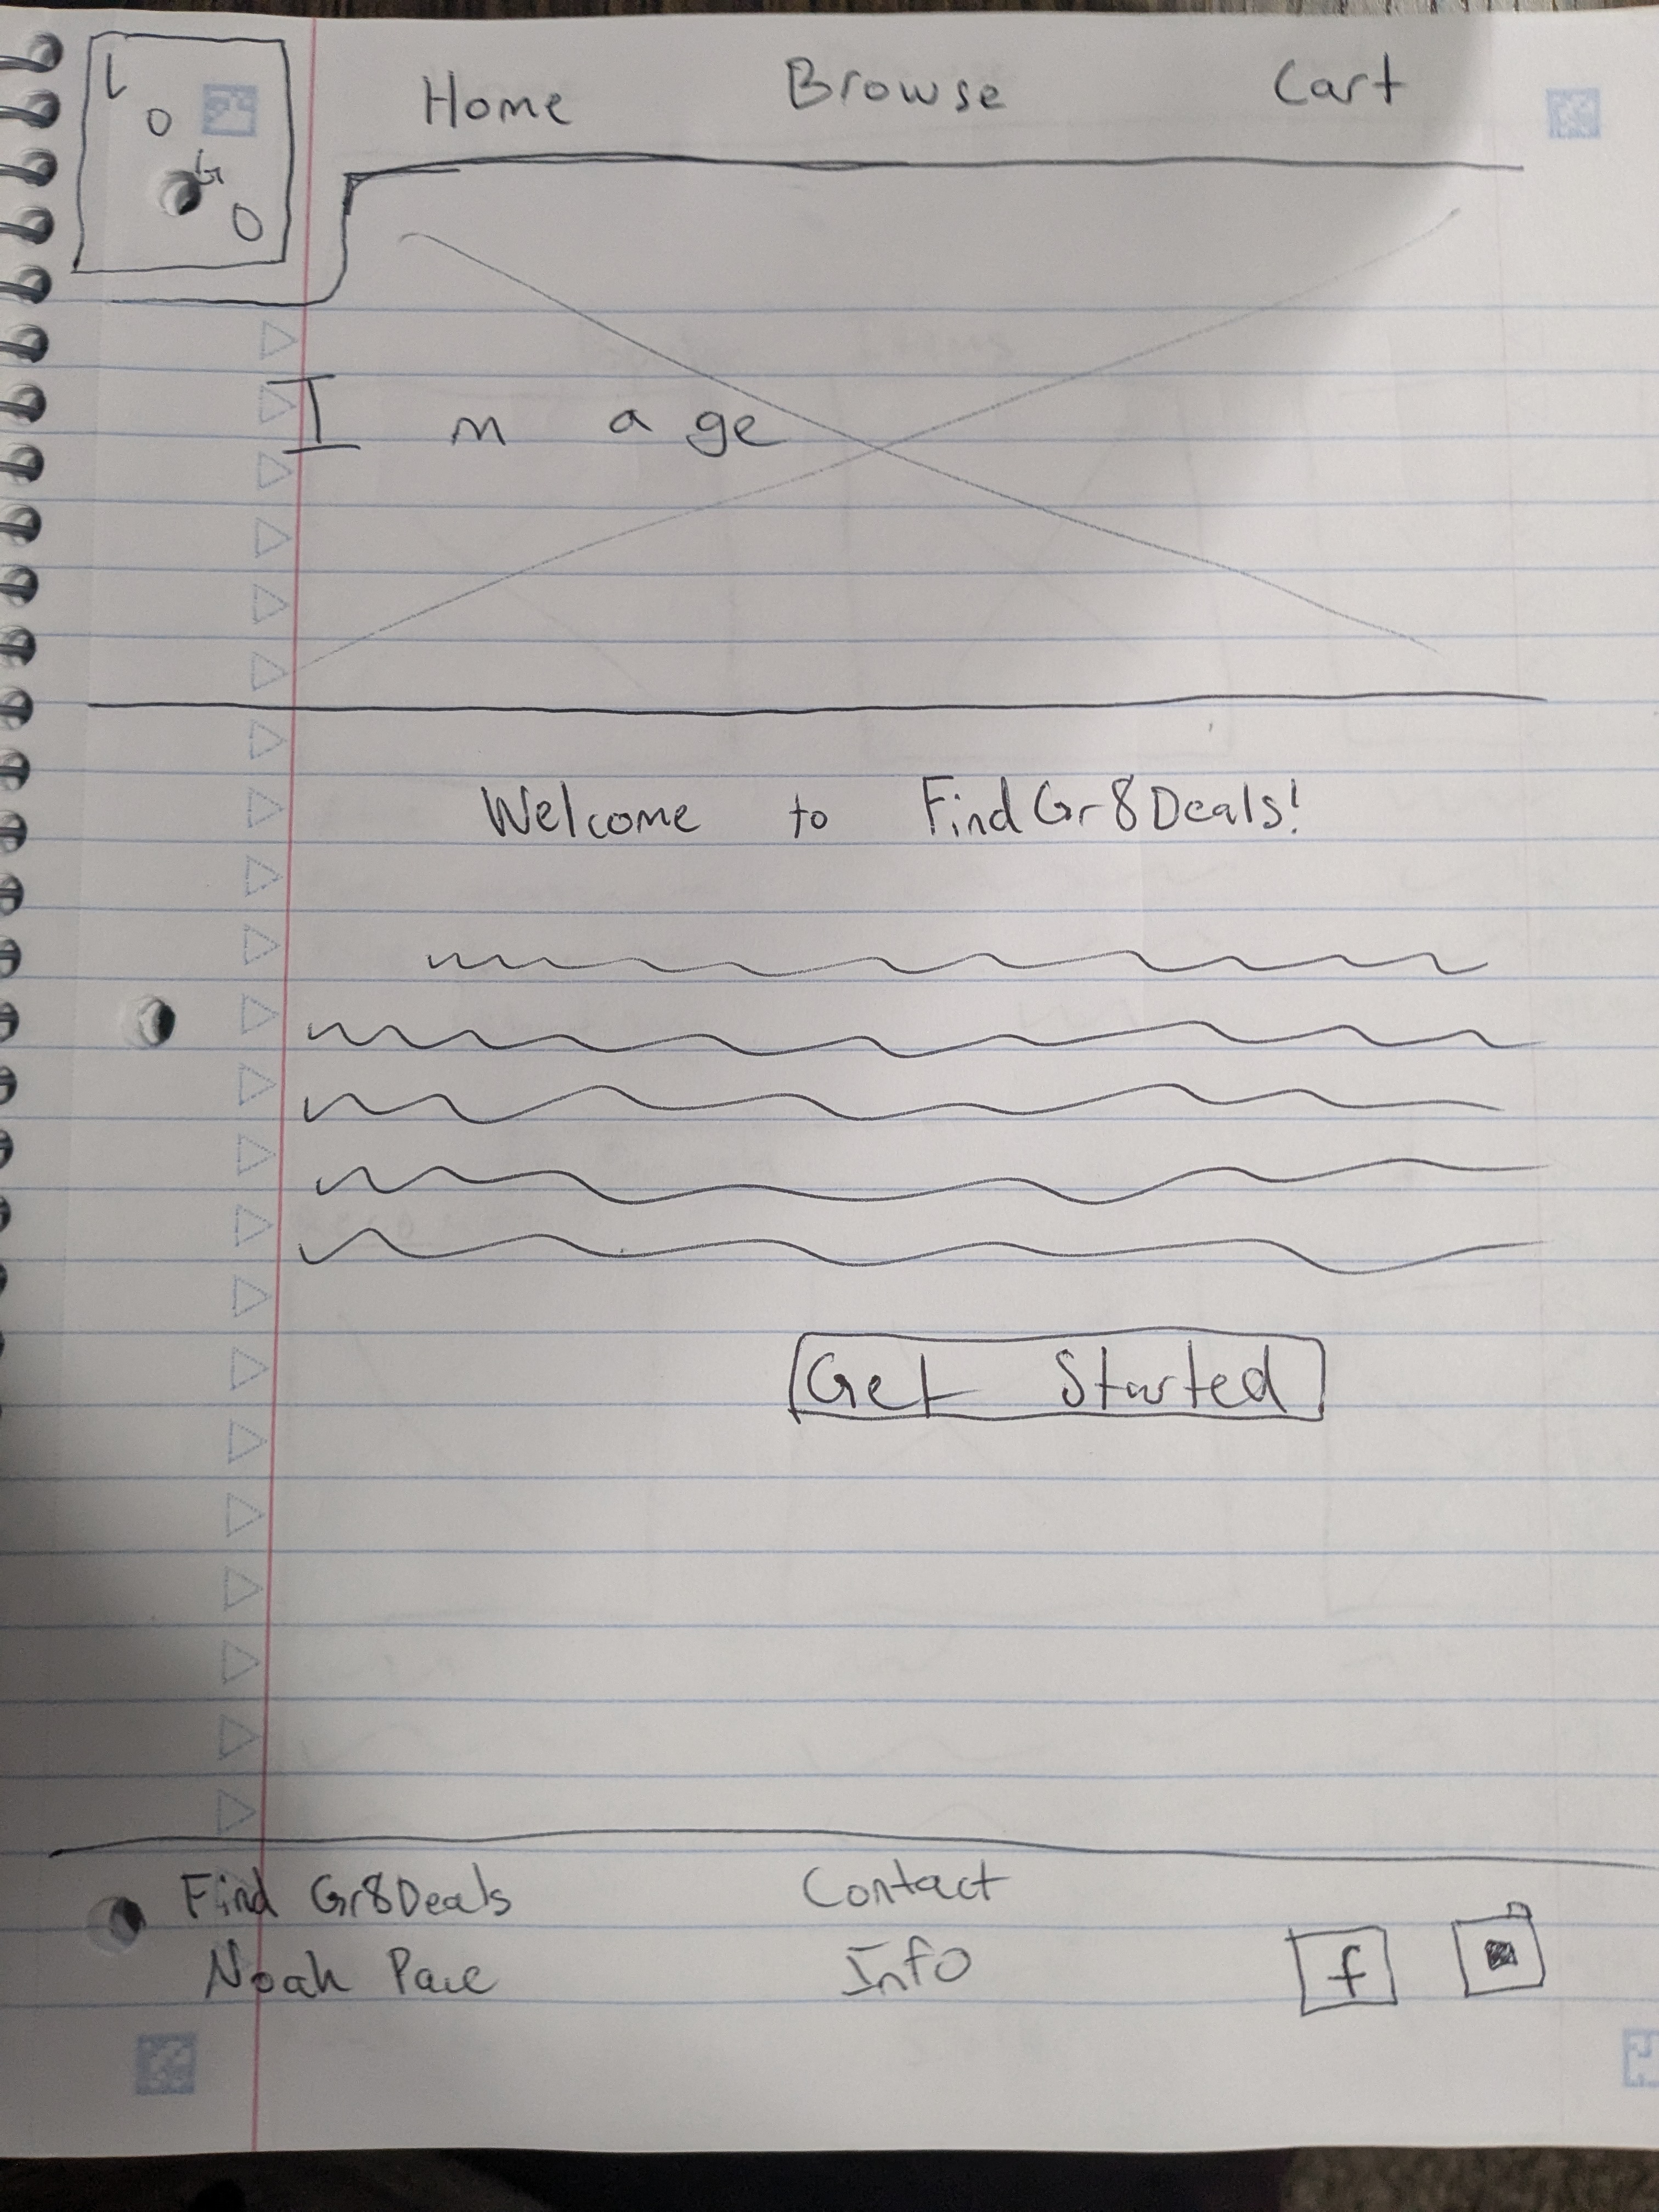 LOGO
Home Browse Cart
Image
Welcome to FindGr8Deals!
Get Started
Find Gr8Deals
Noah Pace
Contact
Info
f